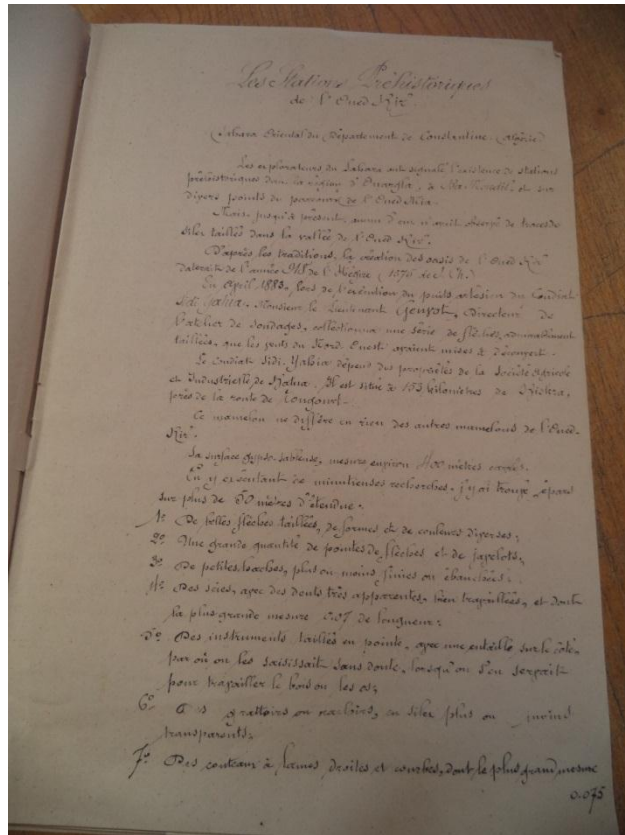 Les Stations Préhistoriques
de l'Oued Rir'
(Sahara Oriental du Département de Constantine, Algérie)
Les explorateurs du Sahara ont signalé l'existence de stations
préhistoriques dans la région d'Ouargla, à et sur
divers points du parcours de l'Oued Mia.
Mais, jusqu'à présent, aucun d'eux n'avait observé de traces de
silex taillés dans la vallée de l'Oued Rir'.
D'après les traditions, la création des oasis de l'Oued Rir'
daterait de l'année 968 de l'Hégire (1576 de J. Ch.)
En Avril 1883, lors de l'exécution du puits artésien du Coudiat
Sidi Yahia. Monsieur le Lieutenant Directeur de
l'atelier de Sondages, collectionna une série de flèches, admirablement
taillées, que les vents du Nord-Ouest avaient mises à découvert.
Le Coudiat Sidi-Yahia dépend des propriétés de la Société Agricole
et Industrielle de Batna. Il est situé à 153 kilomètres de Biskra,
près de la route de Tougourt.
Ce mamelon ne diffère en rien des autres mamelons de l'Oued-
Rir'.
Sa surface gypso-sableuse, mesure environ 400 mètres carrés.
En y exécutant de minutieuses recherches, j'y ai trouvé épars
sur plus de 80 mètres d'étendue.
1º De belles flèches taillées, de formes et de couleurs diverses;
2º Une grande quantité de pointes de flèches et de javelots;
3º De petites haches, plus ou moins finies ou ébauchées;
4º Des scies, avec des dents très apparentes, bien travaillées, et dont
la plus grande mesure 0.07 de longueur;
5º Des instruments taillés en pointe, avec une entaille sur le côté,
par où on les saisissait sans doute, lorsqu'on s'en servait
pour travailler le bois ou les os;
6º Des grattoirs ou racloirs, en silex plus ou moins
transparents;
7º Des couteaux à lames droites et courbes, dont le plus grand mesure
0.075